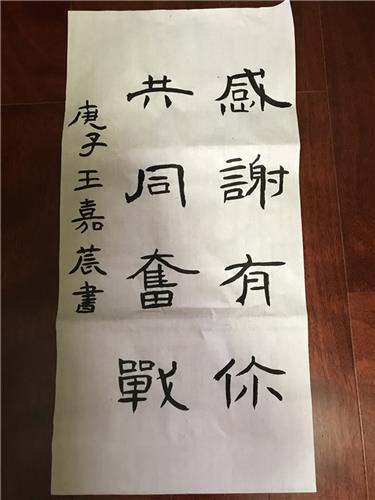 感謝有你
共同奮戰
庚子王嘉蕽書